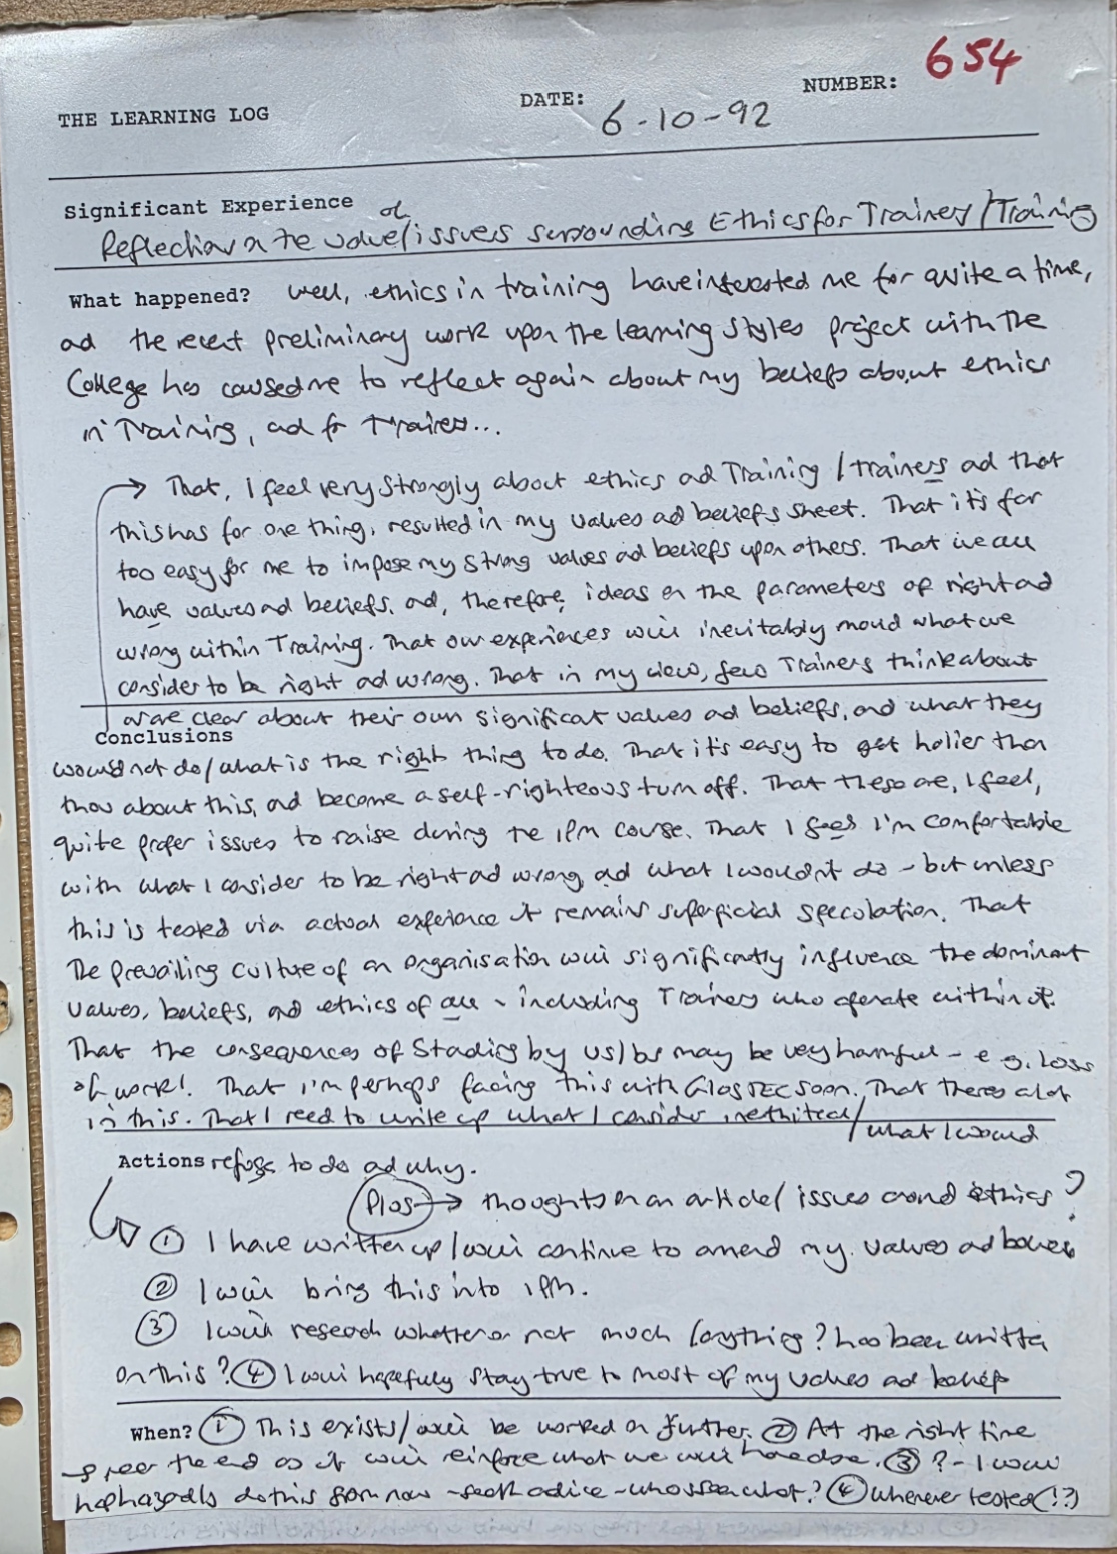 654
THE LEARNING LOG DATE: 6-10-92 NUMBER:
Significant Experience
Reflection on the value/issues surrounding Ethics for Trainers/Training
What happened? Well, ethics in training have interested me for quite a time,
ad the recent preliminary work upon the learning styles project with the
College has caused me to reflect again about my beliefs about ethics
in Training, ad for trainers...
→ That, I feel very strongly about ethics ad Training/trainers ad that
this has for one thing, resulted in my values ad beliefs sheet. That it's far
too easy for me to impose my strong values ad beliefs upon others. That we all
have values ad beliefs, ad, therefore, ideas on the parameters of right ad
wrong within Training. That our experiences will inevitably mould what we
consider to be right ad wrong. That in my view, few Trainers think about
or are clear about their own significant values ad beliefs, and what they
Conclusions
would not do/what is the right thing to do. That it's easy to get holier than
thou about this, ad become a self-righteous turn off. That these are, I feel,
quite proper issues to raise during the IPM course. That I feel I'm comfortable
with what I consider to be right ad wrong, ad what I wouldn't do - but unless
this is tested via actual experience it remains superficial speculation. That
the prevailing culture of an organisation will significantly influence the dominant
values, beliefs, and ethics of all - including Trainers who operate within it.
That the consequences of standing by vs/bs may be very harmful - e.g. loss
of work! That I'm perhaps facing this with GlosTEC soon. That there's a lot
in this. That I need to write up what I consider unethical/what I would
Actions refuse to do ad why.
Plus → thoughts on an article/issues around ethics?
① I have written up/will continue to amend my values ad beliefs
② I will bring this into IPM.
③ I will research whether or not much (anything? has been written
on this? ④ I will hopefully stay true to most of my values ad beliefs
When? ① This exists/will be worked on further. ② At the right time
- near the end as it will reinforce what we will have done. ③ ? - I will
haphazardly do this from now - seek advice - who's seen what? ④ Whenever tested (!?)